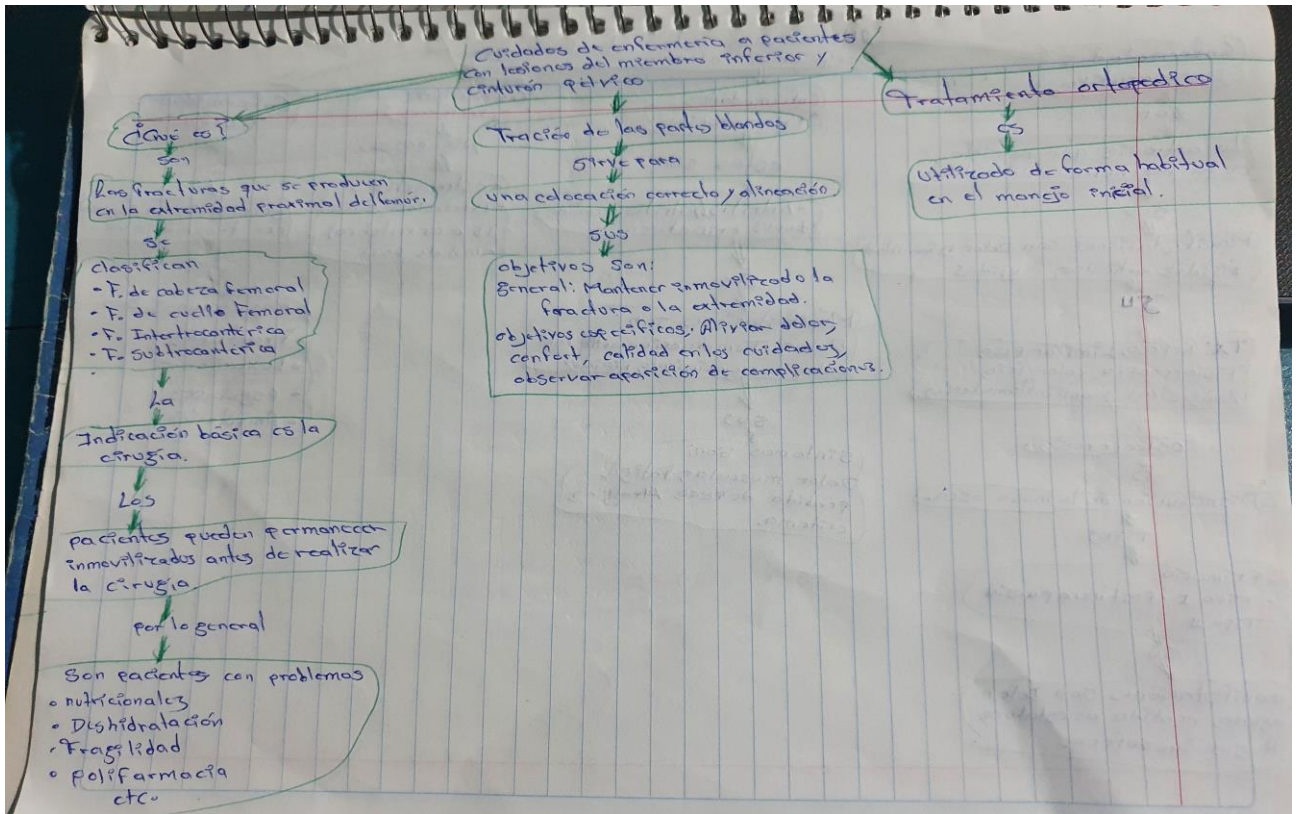 Cuidados de enfermería a pacientes
con lesiones del miembro inferior y
cinturón pélvico
¿Qué es?
son
Las fracturas que se producen
en la extremidad proximal del femur.
se
clasifican
- F. de cabeza femoral
- F. de cuello Femoral
- F. Intertrocantérica
- F. Subtrocantérica
La
Indicación básica es la
cirugía.
Los
pacientes pueden permanecer
inmovilizados antes de realizar
la cirugía
por lo general
Son pacientes con problemas
• nutricionales
• Deshidratación
• Fragilidad
• polifarmacia
etc.
Tración de las partes blandas
Sirve para
una colocación correcta y alineación
sus
objetivos son:
general: Mantener inmovilizado la
foractura o la extremidad.
objetivos específicos: Aliviar dolor,
confort, calidad en los cuidados,
observar aparición de complicaciones.
Tratamiento ortopedico
es
utilizado de forma habitual
en el manejo inicial.